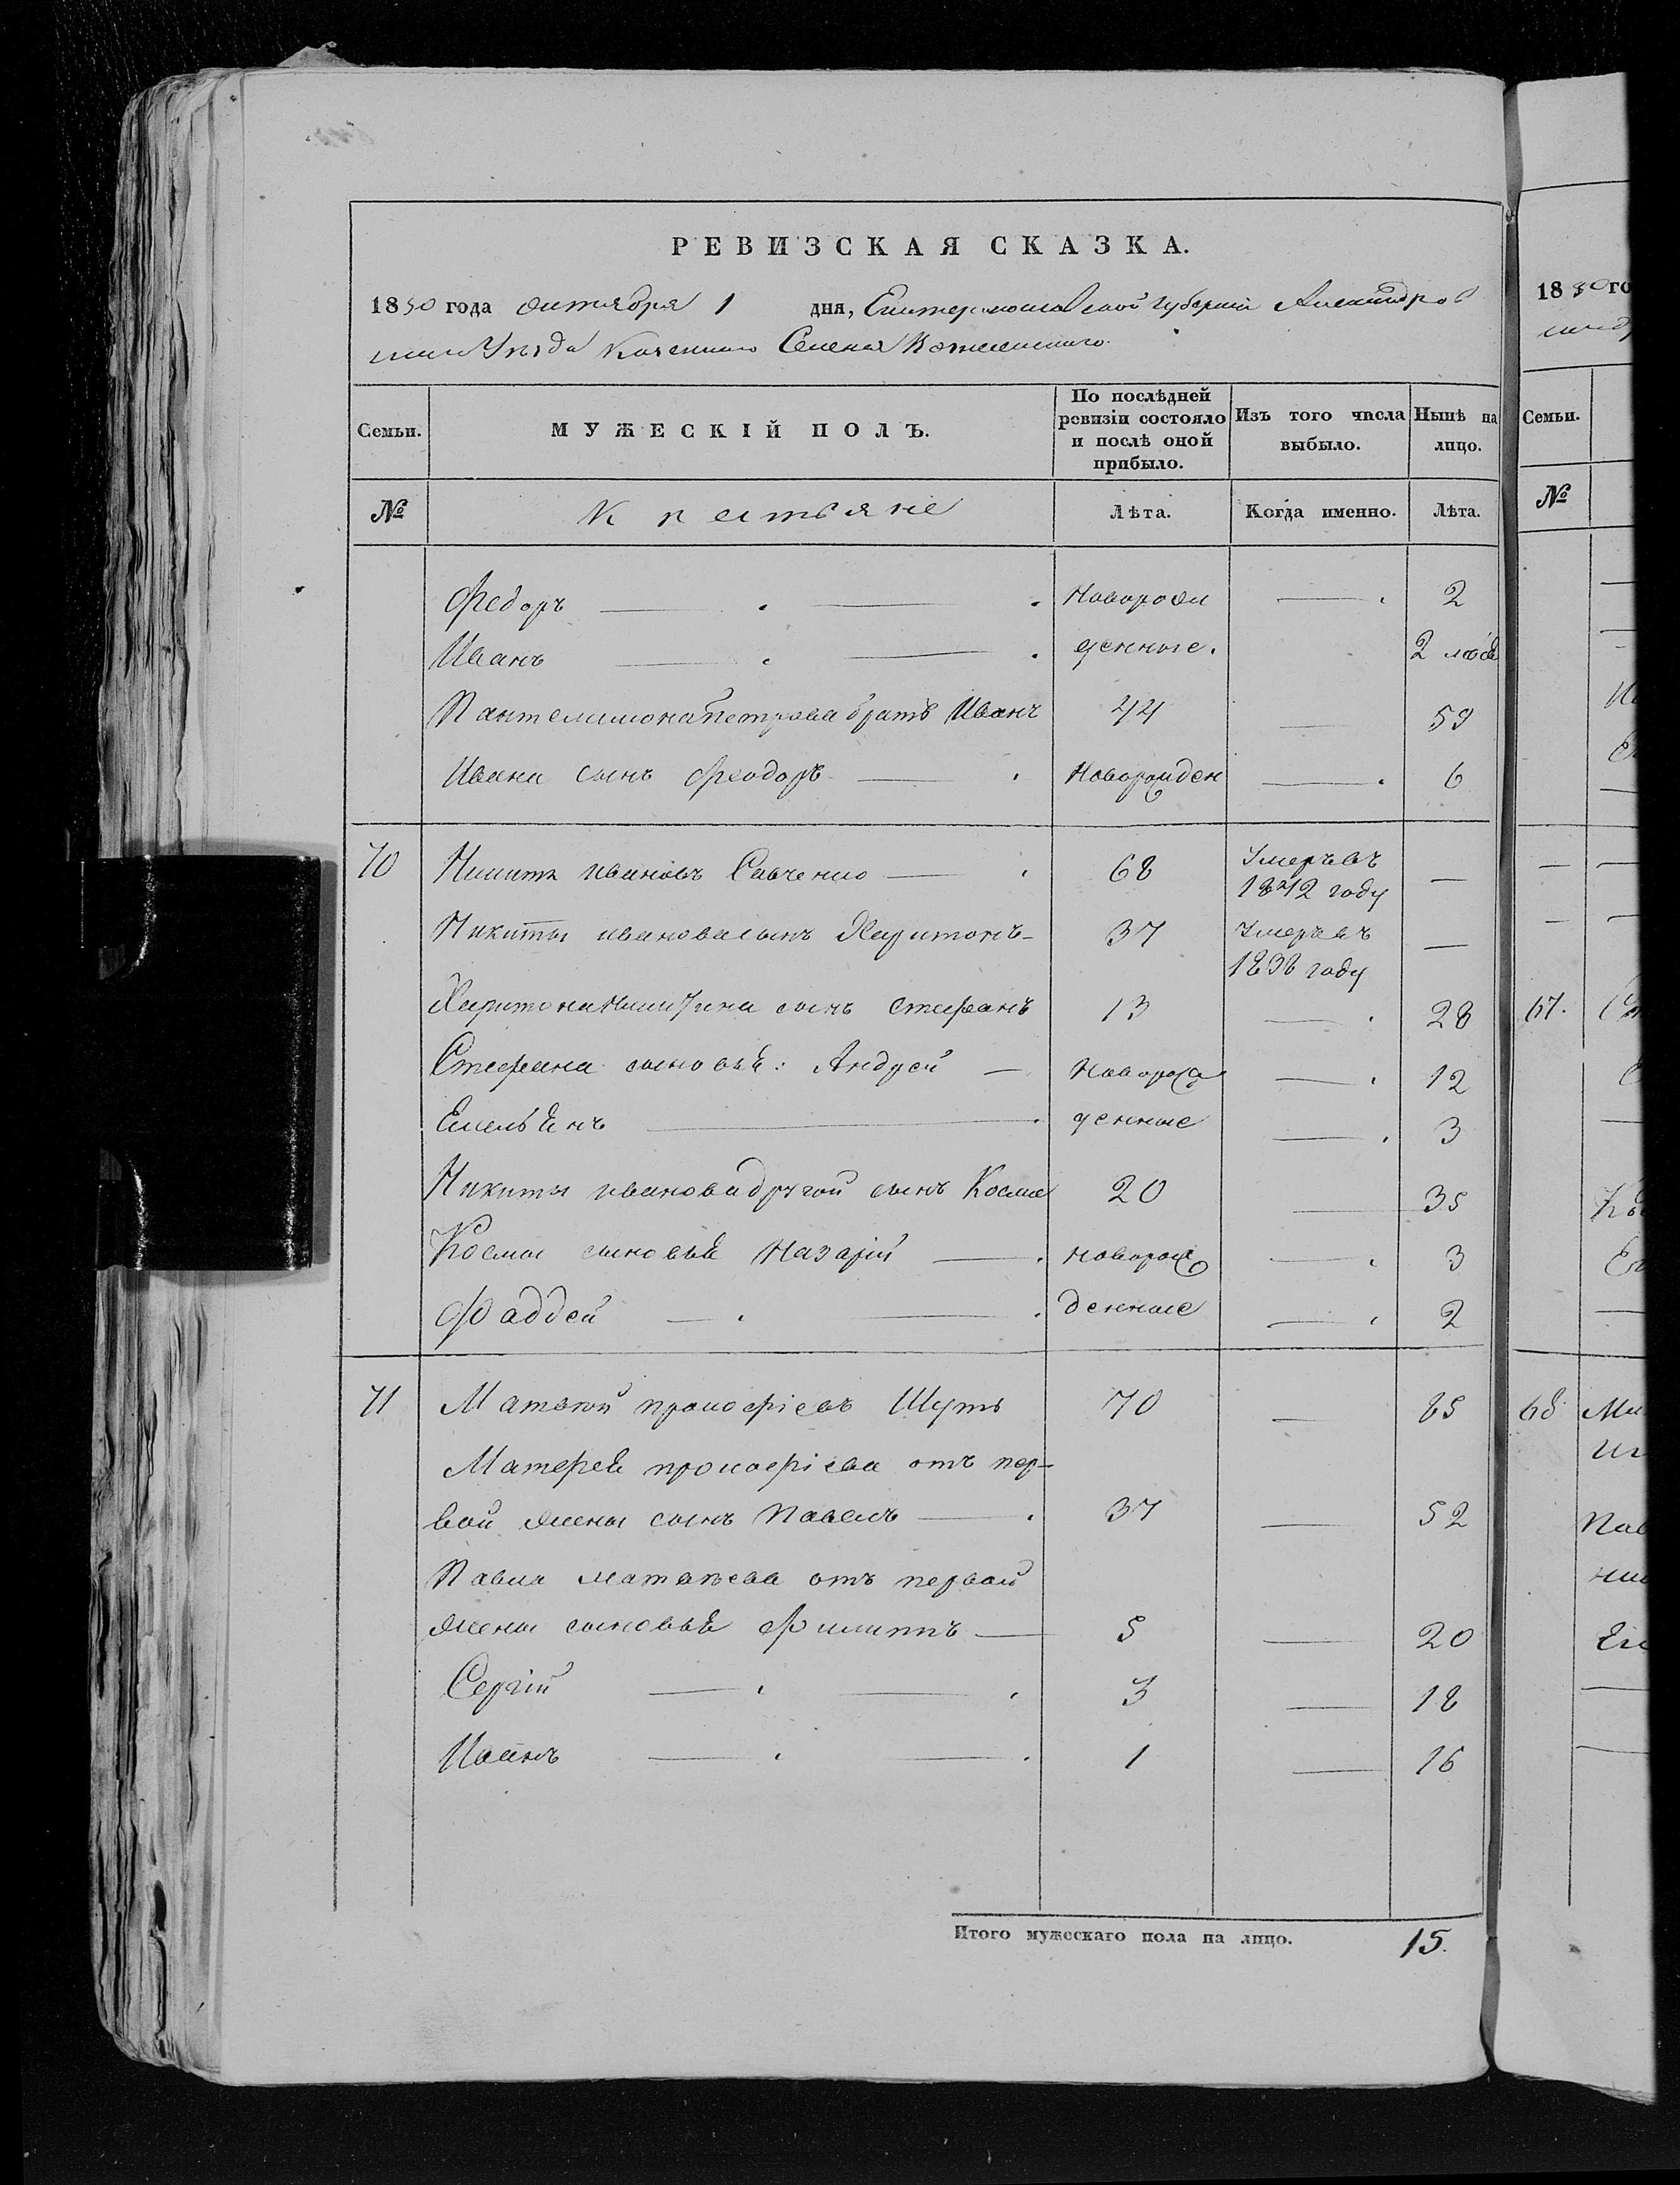 РЕВИЗСКАЯ СКАЗКА.
1850 года октября 1 дня, Екатеринославской губерніи Александров
скаго Уѣзда Казеннаго Селенія
Семьи. МУЖЕСКІЙ ПОЛЪ. По послѣдней ревизіи состояло и послѣ оной прибыло. Изъ того числа выбыло. Нынѣ на лицо.
№ Крестьяне Лѣта. Когда именно. Лѣта.
Федоръ Новорож 2
Иванъ денные. 2
Пантелимона Петрова братъ Иванъ 44 59
Ивана сынъ Феодоръ Новорожден 6
70 Никита Ивановъ Савченко 68 Умеръ въ
1842 году
Никиты Иванова сынъ Харитонъ 37 Умеръ въ
1838 году
Харитона Никитина сынъ Стефанъ 13 28
Стефана сыновья: Андрей Новорож 12
Емельянъ денные 3
Никиты Иванова другой сынъ Косма 20 35
Космы сыновья Назарій Новорож 3
Фаддей денные 2
71 Матвѣй Прокофіевъ Шуть 70 85
Матфея Прокофіева отъ пер-
вой жены сынъ Павелъ 37 52
Павла Матвѣева отъ первой
жены сыновья Филиппъ 5 20
Сергій 3 18
Иванъ 1 16
Итого мужескаго пола на лицо. 15.
1850 го
Семьи.
№
67.
68